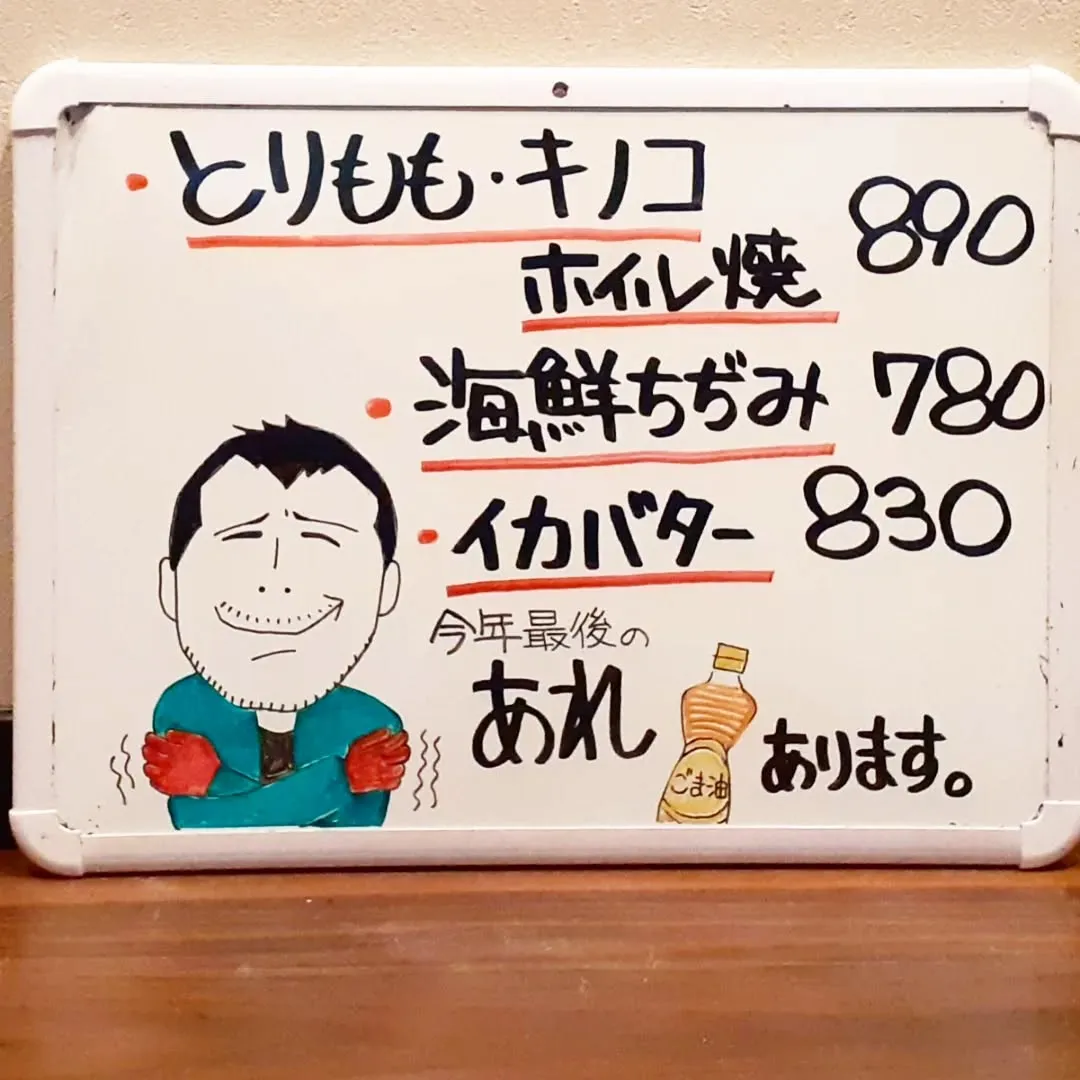 ・とりもも・キノコ
ホイル焼 890
・海鮮ちぢみ 780
・イカバター 830
今年最後の
あれ あります。
ごま油